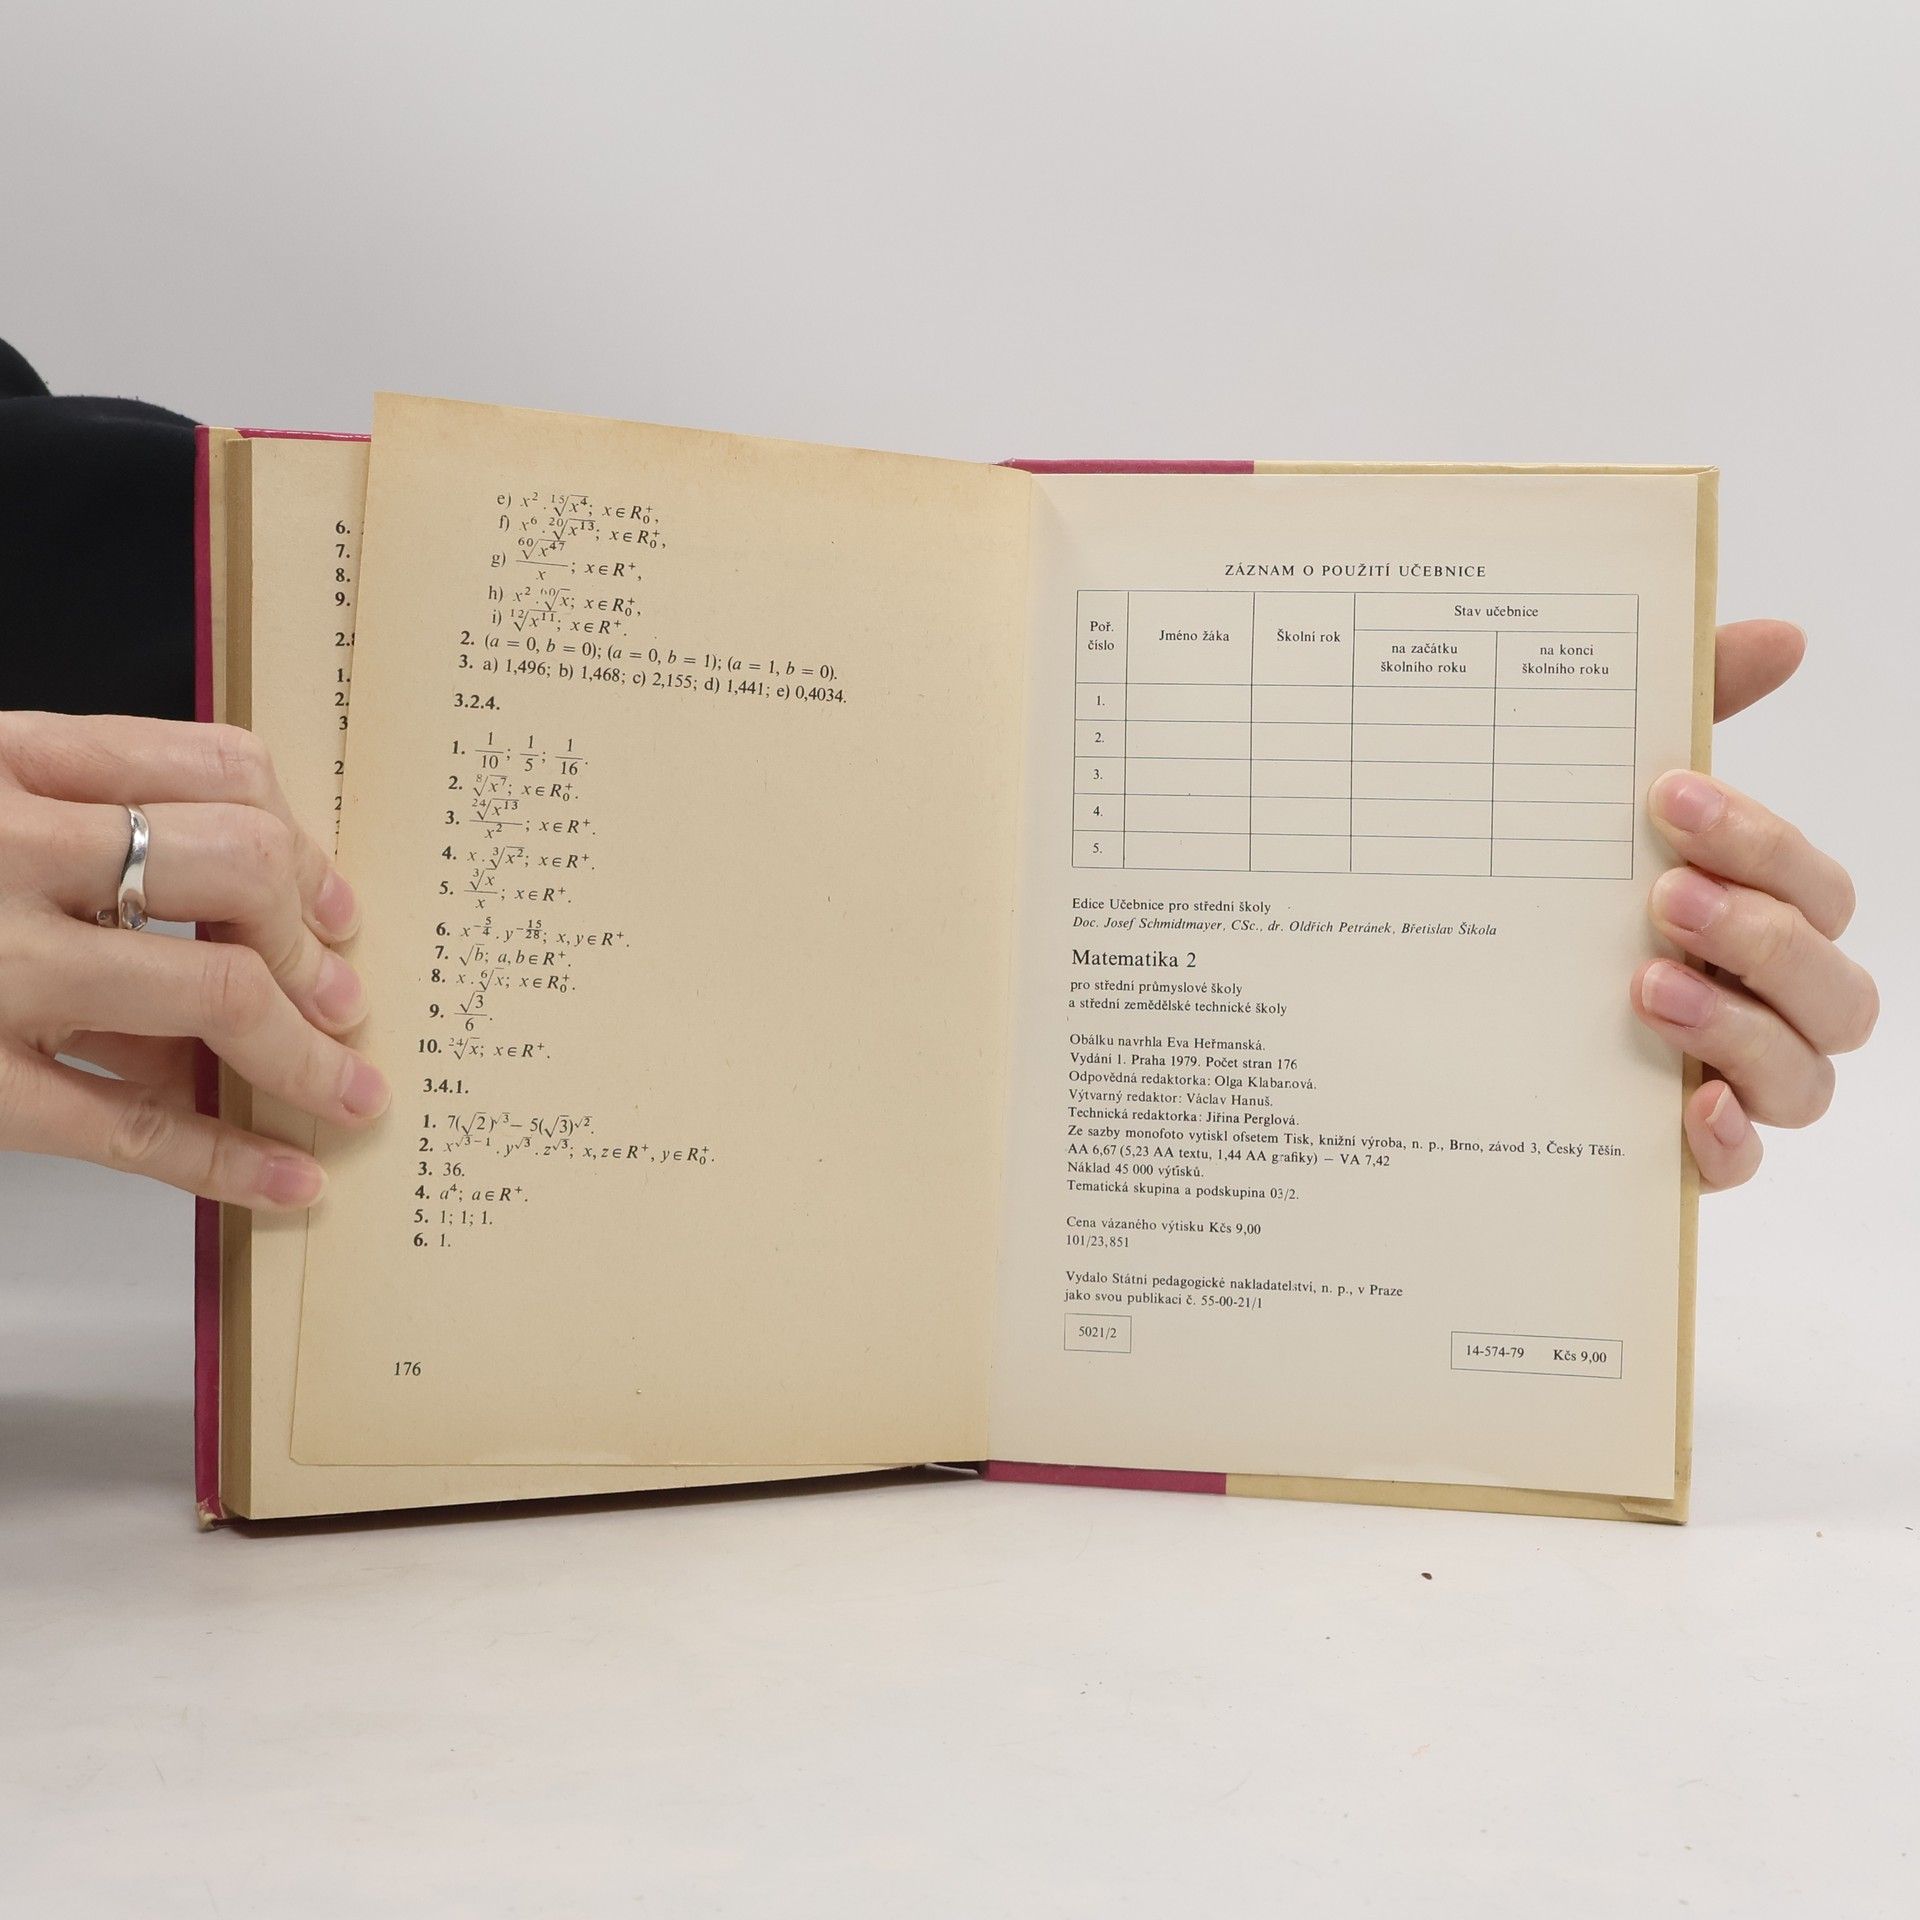 6.
7.
8.
9.
1.
2.
3
2
2
e) x² . ¹⁵√x⁴; x ∈ R₀⁺,
f) x⁶ . ²⁰√x¹³; x ∈ R₀⁺,
g) ⁶⁰√x⁴⁷ / x ; x ∈ R⁺,
h) x² . ⁶⁰√x; x ∈ R₀⁺,
i) ¹²√x¹¹; x ∈ R⁺.
2. (a = 0, b = 0); (a = 0, b = 1); (a = 1, b = 0).
3. a) 1,496; b) 1,468; c) 2,155; d) 1,441; e) 0,4034.
3.2.4.
1. 1/10; 1/5; 1/16.
2. ⁸√x⁷; x ∈ R₀⁺.
3. ²⁴√x¹³ / x² ; x ∈ R⁺.
4. x . ³√x²; x ∈ R⁺.
5. ³√x / x ; x ∈ R⁺.
6. x^(-5/4) . y^(-15/28); x, y ∈ R⁺.
7. √b; a, b ∈ R⁺.
8. x . ⁶√x; x ∈ R₀⁺.
9. √3 / 6 .
10. ²⁴√x; x ∈ R⁺.
3.4.1.
1. 7(√2)^√3 – 5(√3)^√2.
2. x^(√3–1) . y^√3 . z^√3; x, z ∈ R⁺, y ∈ R₀⁺.
3. 36.
4. a⁴; a ∈ R⁺.
5. 1; 1; 1.
6. 1.
176
ZÁZNAM O POUŽITÍ UČEBNICE
Poř. číslo
Jméno žáka
Školní rok
Stav učebnice
na začátku školního roku
na konci školního roku
1.
2.
3.
4.
5.
Edice Učebnice pro střední školy
Doc. Josef Schmidtmayer, CSc., dr. Oldřich Petránek, Břetislav Šikola
Matematika 2
pro střední průmyslové školy
a střední zemědělské technické školy
Obálku navrhla Eva Heřmanská.
Vydání 1. Praha 1979. Počet stran 176
Odpovědná redaktorka: Olga Klabanová.
Výtvarný redaktor: Václav Hanuš.
Technická redaktorka: Jiřina Perglová.
Ze sazby monofoto vytiskl ofsetem Tisk, knižní výroba, n. p., Brno, závod 3, Český Těšín.
AA 6,67 (5,23 AA textu, 1,44 AA grafiky) – VA 7,42
Náklad 45 000 výtisků.
Tematická skupina a podskupina 03/2.
Cena vázaného výtisku Kčs 9,00
101/23,851
Vydalo Státní pedagogické nakladatelství, n. p., v Praze
jako svou publikaci č. 55-00-21/1
5021/2
14-574-79 Kčs 9,00